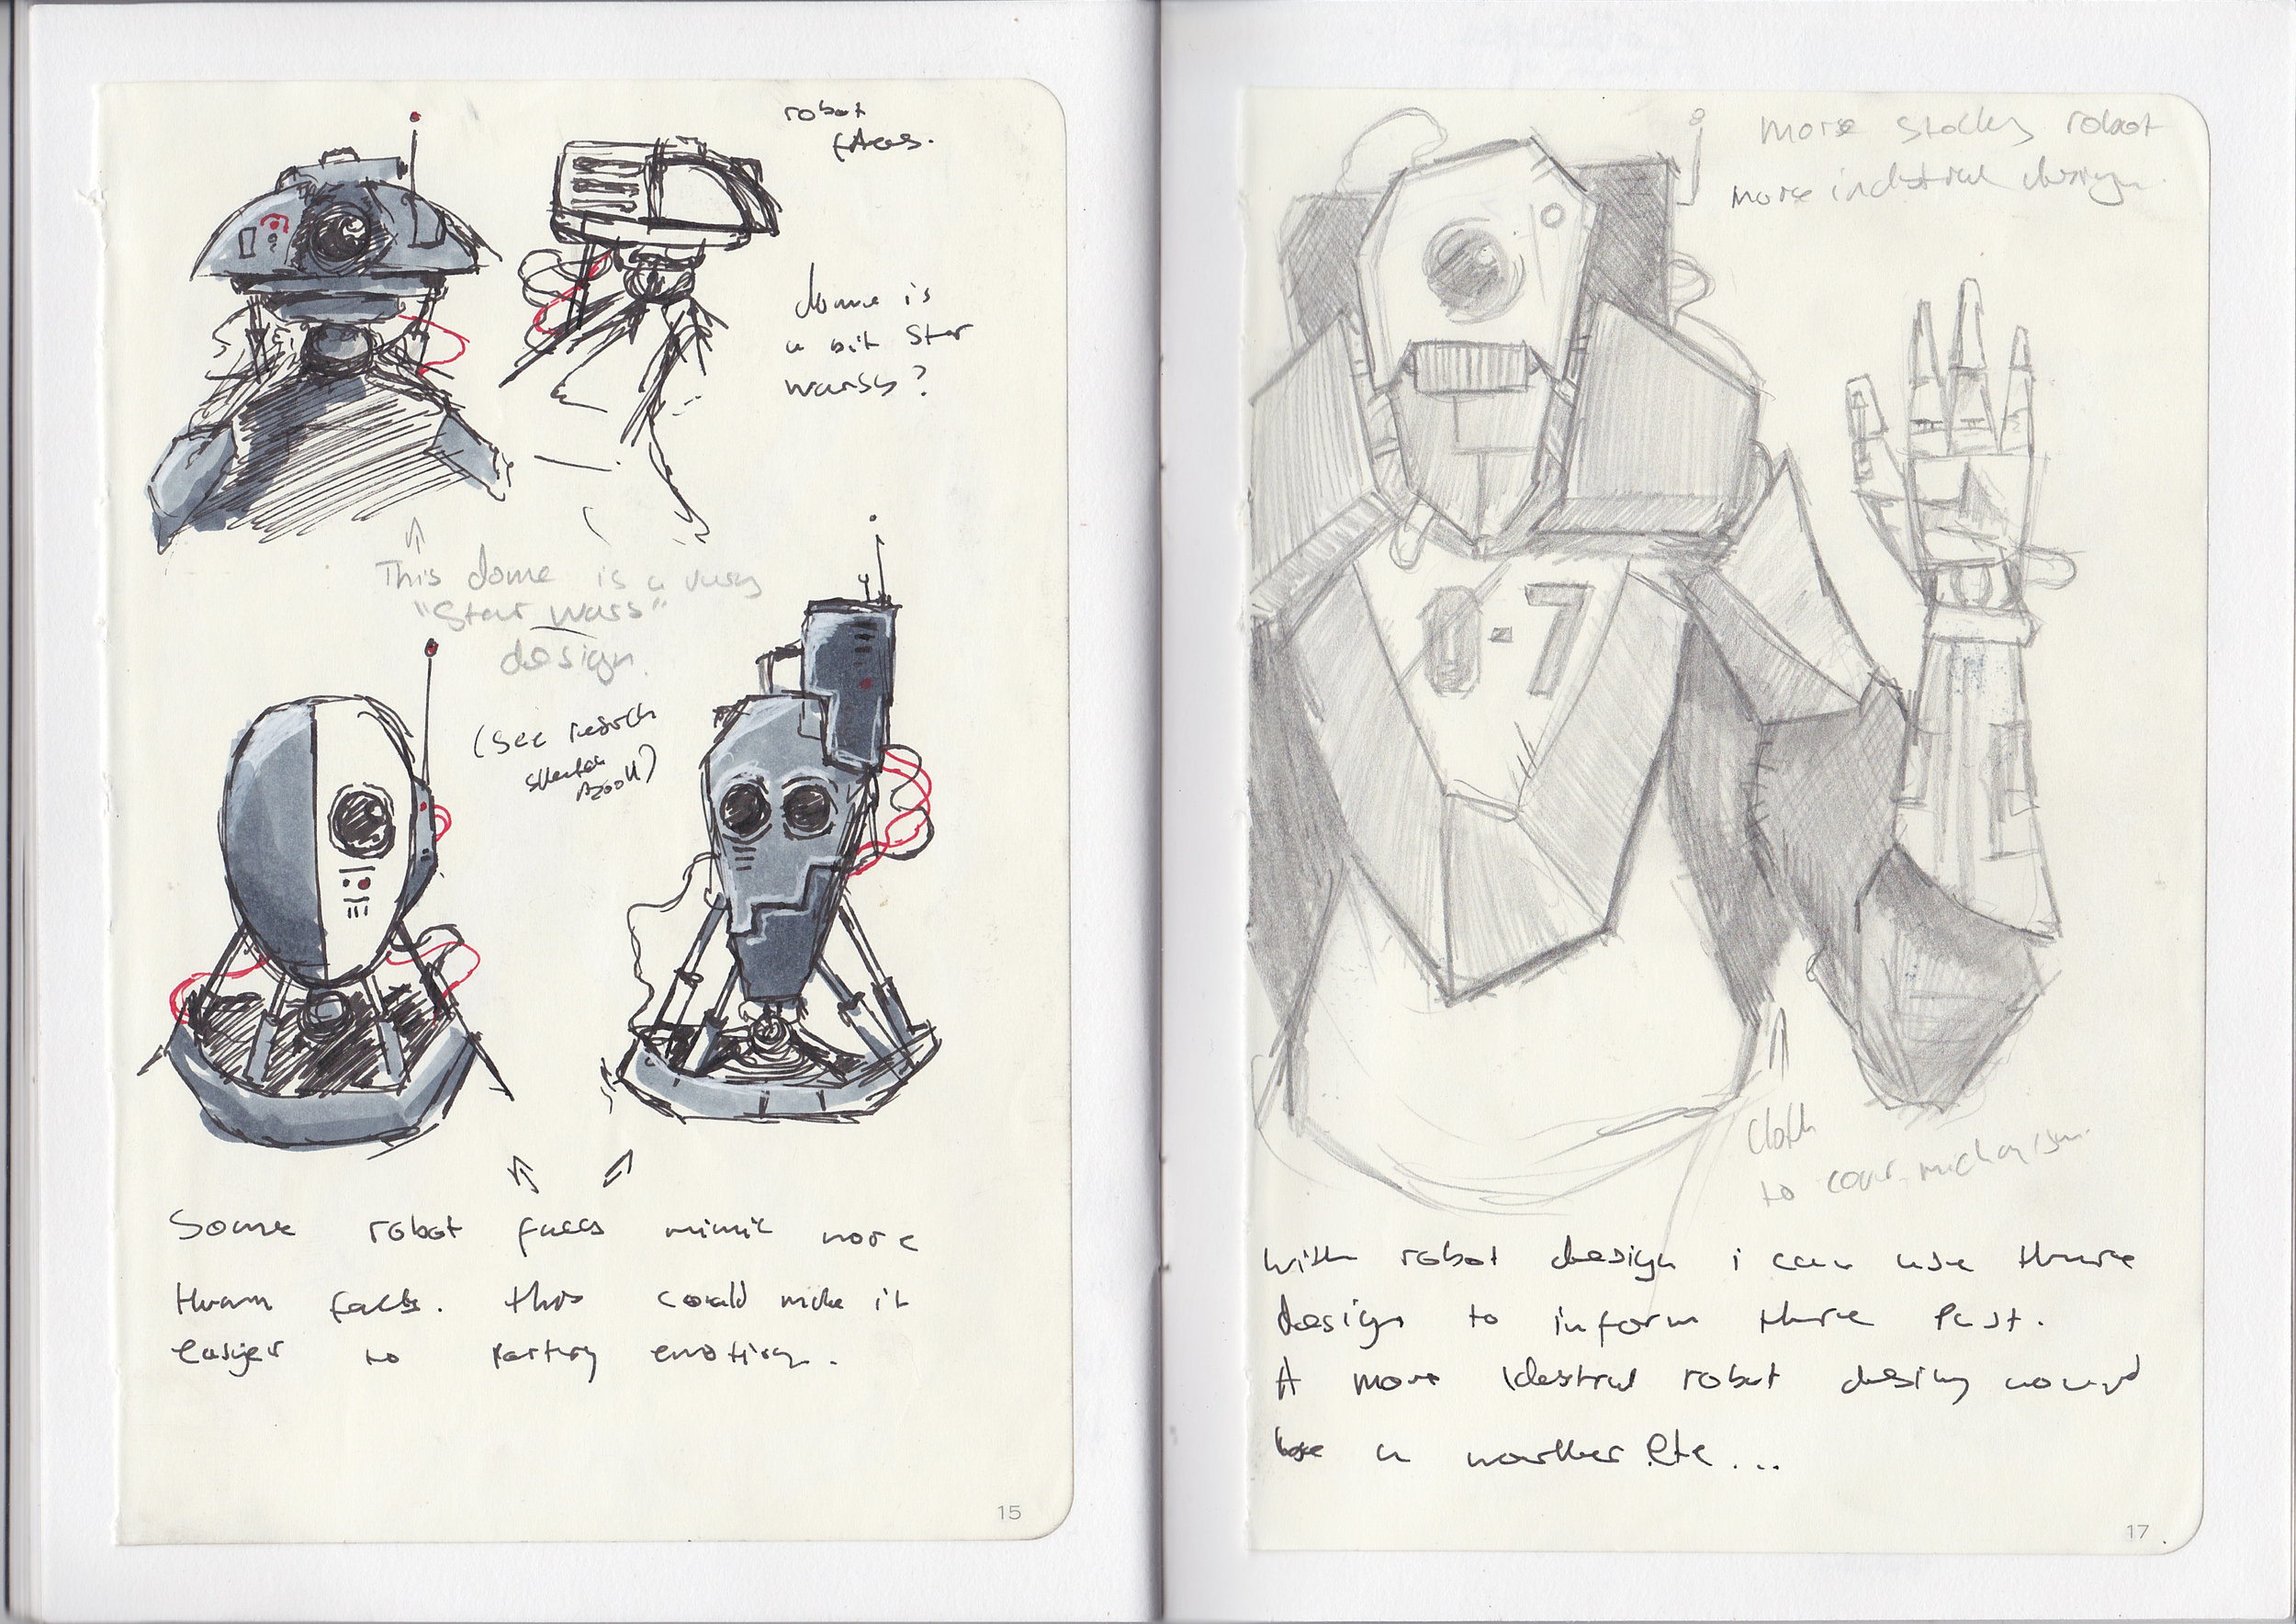 robot
faces.
dome is
a bit Star
warsy?
This dome is a very
"Star wars"
design.
(see
Some robot faces mimic more
human faces. this could make it
easyer to emotion.
15
more stocky robot
more industrial design.
0-7
cloth
to cover mechanism.
With robot design i can use there
design to inform there past.
A more robot design would
be a worker etc...
17